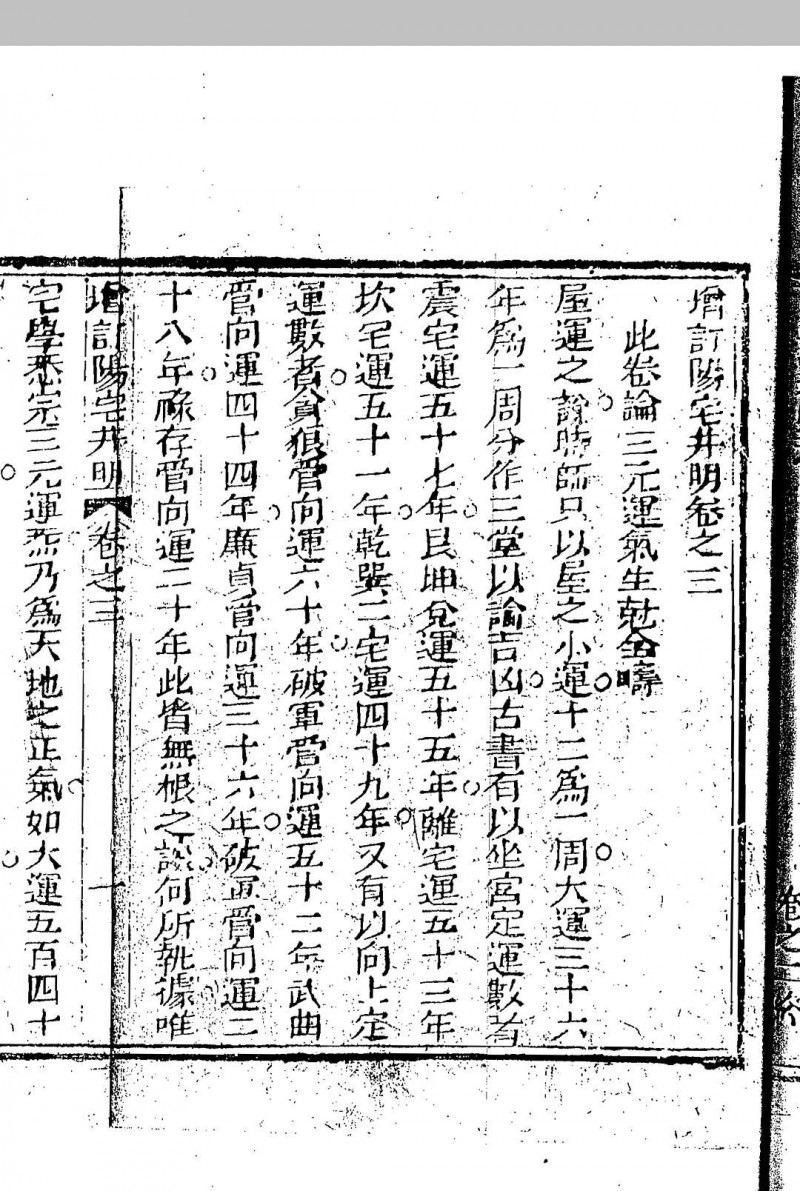 增訂陽宅井明卷之三
此卷論三元運氣生尅全疇
屋運之說時師只以屋之小運十二為一周大運三十六
年為一周分作三堂以論吉凶古書有以坐宮定運數者
震宅運五十七年艮坤兌運五十五年離宅運五十三年
坎宅運五十一年乾巽二宅運四十九年又有以向上定
運數者貪狼管向運六十年破軍管向運五十二年武曲
管向運四十四年廉貞管向運三十六年破軍管向運二
十八年祿存管向運二十年此皆無根之談何所執據唯
增訂陽宅井明 卷之三 一
宅學悉宗三元運炁乃為天地之正氣如大運五百四十
卷之三終